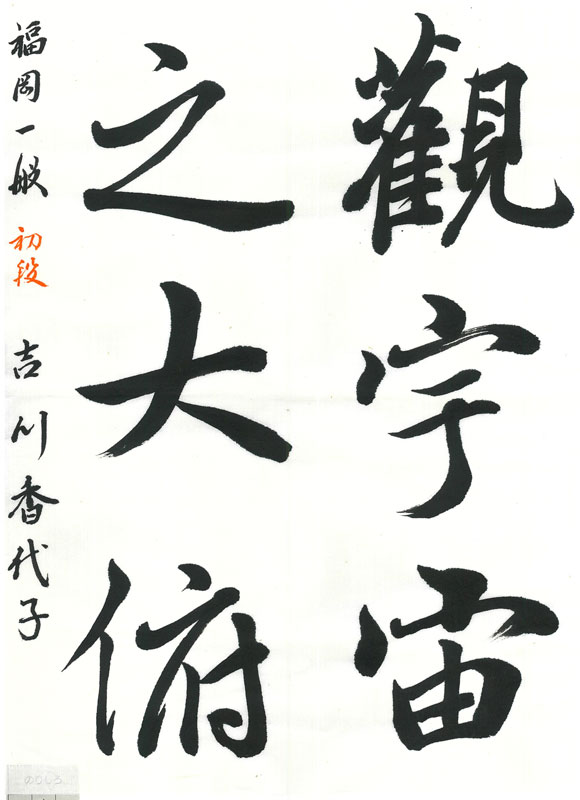 觀宇宙
之大俯
福岡一般 初段 吉川香代子